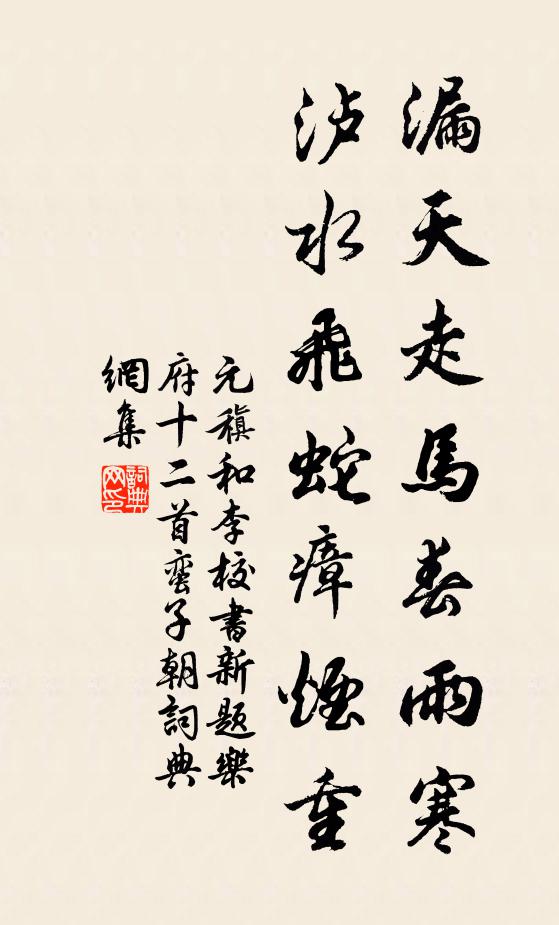 漏天走馬春雨寒
泸水飛蛇瘴煙重
元稹和李校書新題樂
府十二首蛮子朝詞典
網集
詞典
网印